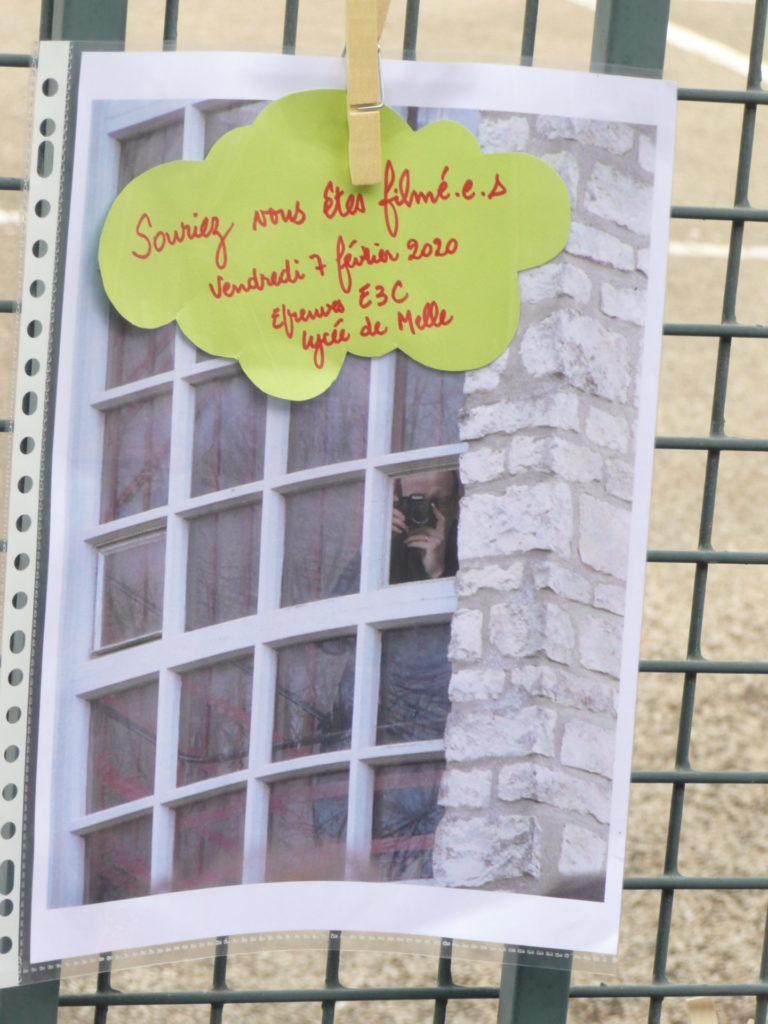 Souriez vous êtes filmé.e.s
Vendredi 7 février 2020
Epreuves E3C
Lycée de Melle